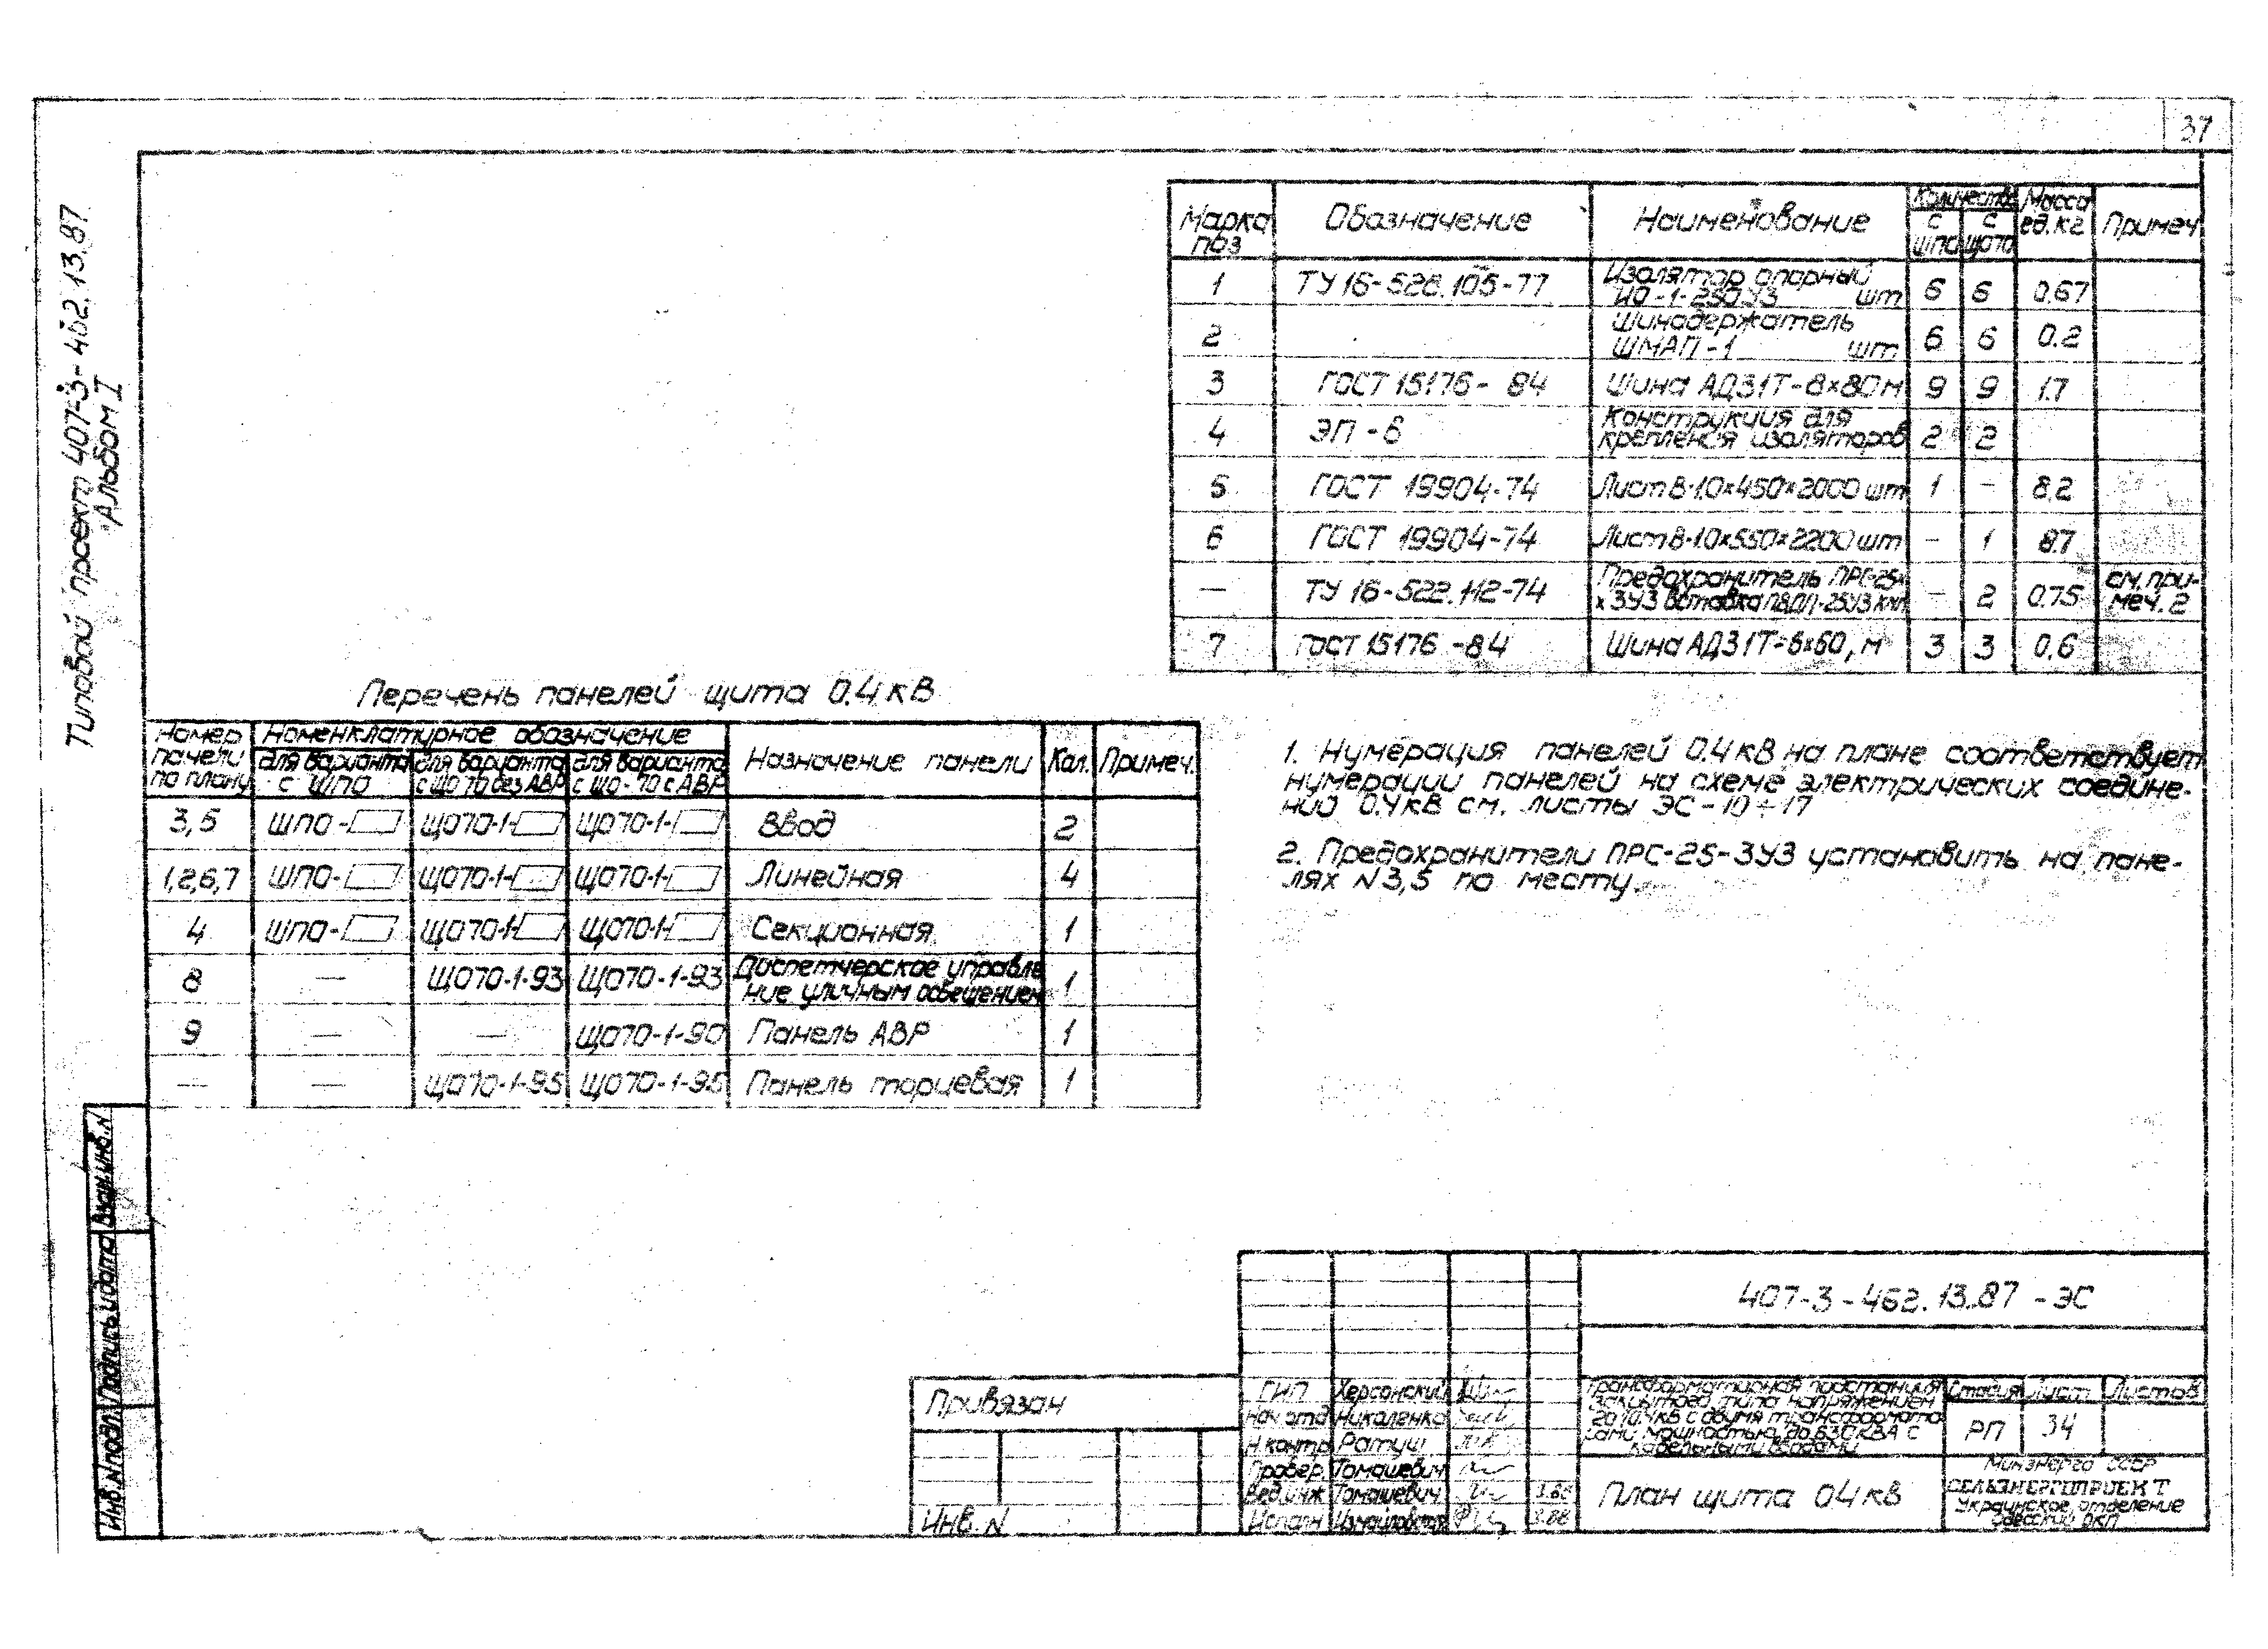 37
Типовой проект 407-3-462.13.87
Альбом I
Марка поз
Обозначение
Наименование
Количество
с ШПО
с ЩО70
Масса ед. кг
Примеч
1 ТУ 16-528.105-77 Изолятор опорный ИО-1-250У3 шт 6 6 0.67
2 Шинодержатель ШМАП-1 шт 6 6 0.2
3 ГОСТ 15176-84 Шина АД31Т-8×80 м 9 9 1.7
4 ЭП-8 Конструкция для крепления изоляторов 2 2
5 ГОСТ 19904-74 Лист В-1.0×450×2000 шт 1 – 8.2
6 ГОСТ 19904-74 Лист В-1.0×550×2200 шт – 1 8.7
— ТУ 16-522.112-74 Предохранитель ПРС-25× ×3У3 вставка ПВДП-25У3 кмп – 2 0.75 см. примеч. 2
7 ГОСТ 15176-84 Шина АД31Т-6×60, м 3 3 0.6
Перечень панелей щита 0.4 кВ
Номер панели по плану
Номенклатурное обозначение
для варианта с ШПО
для варианта с ЩО 70 без АВР
для варианта с ЩО-70 с АВР
Назначение панели
Кол.
Примеч.
3,5 ШПО- ЩО70-1- ЩО70-1- Ввод 2
1,2,6,7 ШПО- ЩО70-1- ЩО70-1- Линейная 4
4 ШПО- ЩО70-1- ЩО70-1- Секционная 1
8 — ЩО70-1-93 ЩО70-1-93 Диспетчерское управление уличным освещением 1
9 — — ЩО70-1-90 Панель АВР 1
— — ЩО70-1-95 ЩО70-1-95 Панель торцевая 1
1. Нумерация панелей 0.4 кВ на плане соответствует
нумерации панелей на схеме электрических соедине-
ний 0.4 кВ см. листы ЭС-10÷17
2. Предохранители ПРС-25-3У3 установить на пане-
лях N3,5 по месту.
Взам. инв. N
Подпись и дата
Инв. N подл.
Привязан
Инв. N
407-3-462.13.87-ЭС
ГИП Херсонский
Нач. отд Николенко
Н. контр Ратуш
Провер. Томашевич
Вед. инж Томашевич 3.88
Исполн Измайловская 3.88
Трансформаторная подстанция
закрытого типа напряжением
10/0.4кВ с двумя трансформато
рами мощностью до 630 кВА с
кабельными вводами
Стадия Лист Листов
РП 34
План щита 0.4 кВ
Минэнерго СССР
СЕЛЬЭНЕРГОПРОЕКТ
Украинское отделение
Одесский ОКП